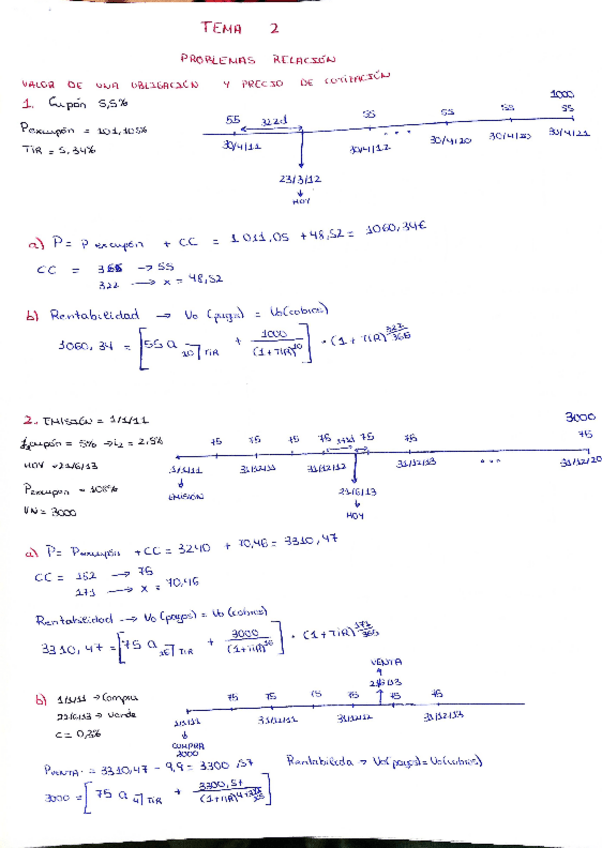 TEMA 2
PROBLEMAS RELACIÓN
VALOR DE UNA OBLIGACIÓN Y PRECIO DE COTIZACIÓN
1. Cupón 5,5%
Pexcupón = 101,105%
TIR = 5,34%
55 322d 55 55 55 1000 55
30/4/11 30/4/12 30/4/20 30/4/20 30/4/21
23/3/12
HOY
a) P = P excupón + CC = 1011,05 + 48,52 = 1060,34€
CC = 365 → 55
322 → x = 48,52
b) Rentabilidad → Vo (pagos) = Vo (cobros)
1060,34 = [55 a 10┐TIR + 1000/(1+TIR)^10] · (1+TIR)^322/365
2. EMISIÓN = 1/1/11
= 5% → i2 = 2,5%
HOY = 21/6/13
Pexcupón = 108%
VN = 3000
75 75 75 75 75 75 3000 75
1/1/11 31/12/11 31/12/12 31/12/13 31/12/20
EMISIÓN
21/6/13
HOY
a) P = Pexcupón + CC = 3240 + 70,46 = 3310,47
CC = 182 → 75
171 → x = 70,46
Rentabilidad → Vo (pagos) = Vo (cobros)
3310,47 = [75 a 16┐TIR + 3000/(1+TIR)^16] · (1+TIR)
VENTA
b) 1/1/11 → Compra
→ Vende
75 75 75 75 75 75
1/1/11 31/12/11 31/12/12 31/12/13
COMPRA
3000
PVENTA = 3310,47 - 9,9 = 3300,57
Rentabilidad → Vo (pagos) = Vo (cobros)
3000 = [75 a 4┐TIR + 3300,57/(1+TIR)]